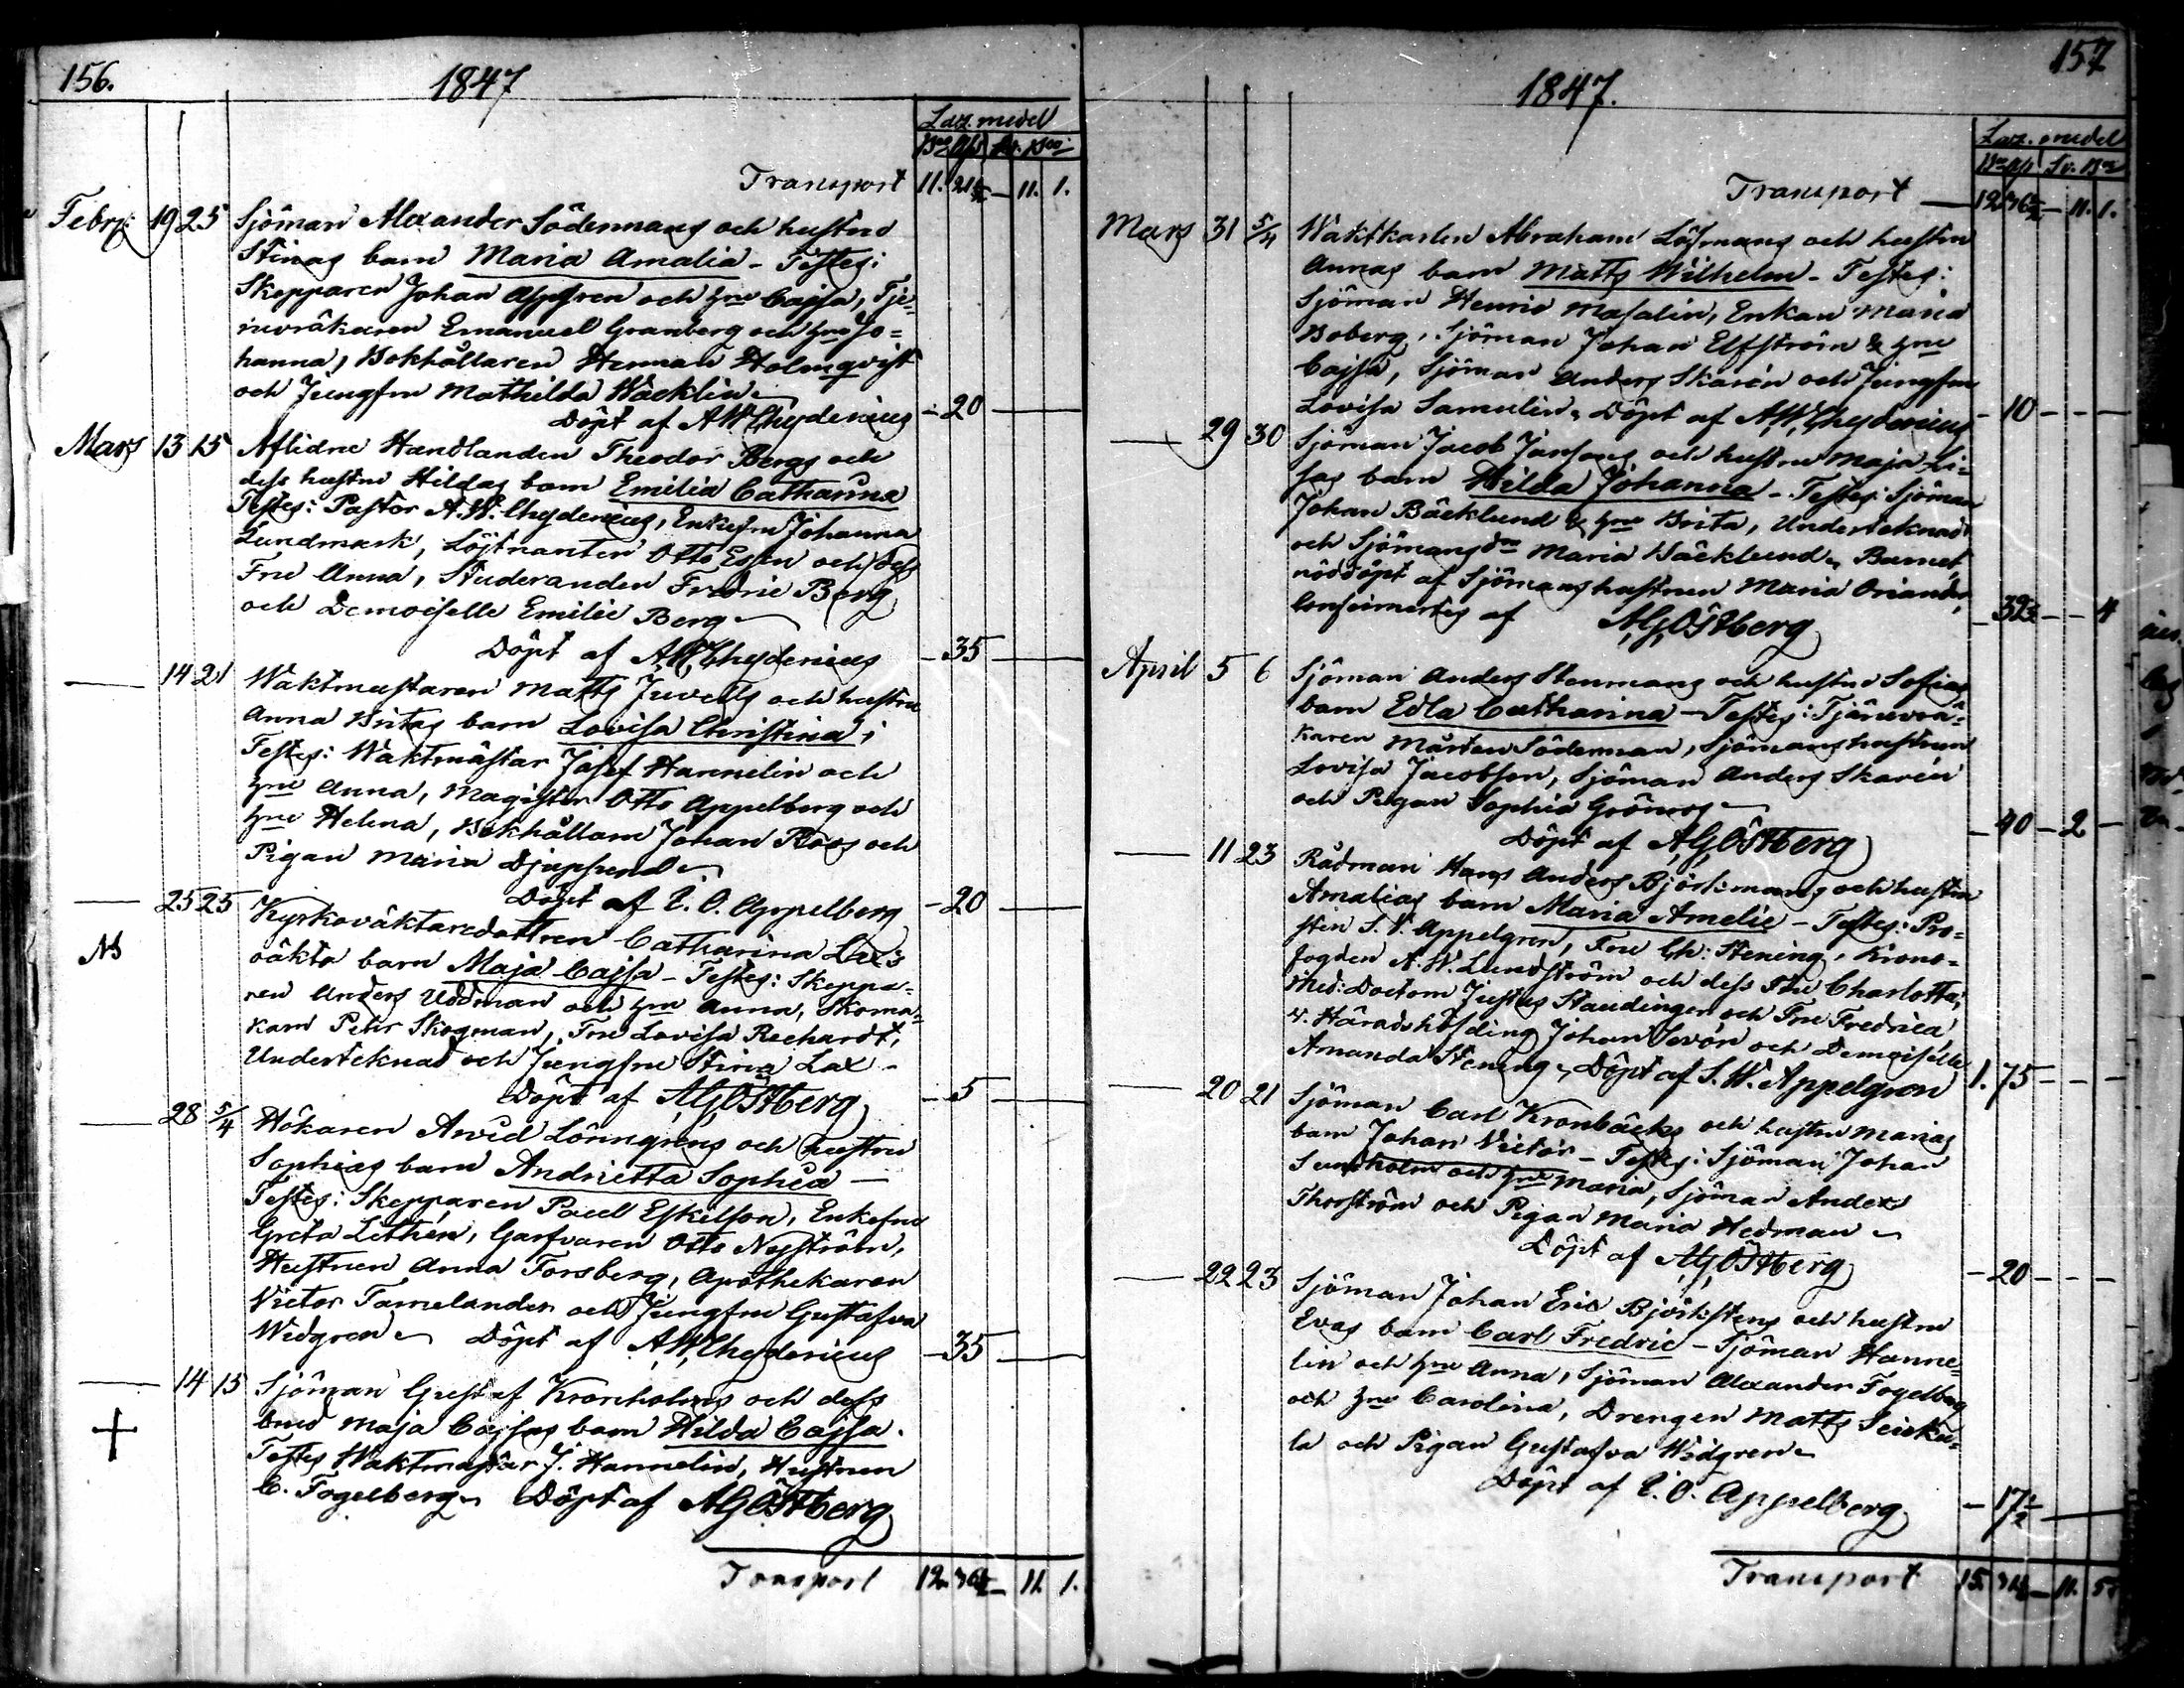 156.
1847
Laz. medel
Transport 11. 21½ — 11. 1.
Febr: 19 25 Sjöman Alexander Södermans och hustru
Stinas barn Maria Amalia - Testes:
Skepparen Johan Appgren och hru Cajsa, Tje-
ruvräkaren Emanuel Granberg och hru Jo=
hanna, Bokhållaren Herman Holmqvist
och Jungfru Mathilda Wäcklin
Döpt af AWChydenius - 20 —
Mars 13 15 Aflidne Handlanden Theodor Bergs och
dess hustru Hildas barn Emilia Catharina
Testes: Pastor A.W. Chydenius, Enkefru Johanna
Lundmark, Löjtnanten Otto Essen och dess
Fru Anna, Studeranden Fredric Berg
och Demoiselle Emilie Berg
Döpt af AWChydenius - 35 —
— 14 21 Waktmästaren Matts Juvells och hustru
Anna Britas barn Lovisa Christina;
Testes: Waktmästar Josef Hannelin och
hru Anna, Magister Otto Appelberg och
hru Helena, Bokhållarn Johan Roos och
Pigan Maria Djupsund
Döpt af E. O. Appelberg - 20 —
— 25 25 Kyrkoväktaredottren Catharina Lax's
NB oäkta barn Maja Cajsa - Testes: Skeppa=
ren Anders Uddman och hru Anna, Skoma=
karn Petter Skogman, Fru Lovisa Rechardt,
Underteknad och Jungfru Stina Lax -
Döpt af AGÖstberg - 5 —
— 28 5/4 Hökaren Arvid Lönngrens och hustru
Sophias barn Andrietta Sophia —
Testes: Skepparen Paul Eskilson, Enkefru
Greta Lithén, Garfvaren Otto Nyström,
Hustrun Anna Forsberg, Apothekaren
Victor Tamelander och Jungfru Gustafva
Widgren Döpt af AWChydenius - 35 —
— 14 15 Sjöman Gustaf Kronholms och dess
+ brud Maja Cajsas barn Hilda Cajsa.
Testes Waktmästar J. Hannelin, Hustrun
C. Fogelberg Döpt af AGÖstberg
Transport 12. 36½ — 11. 1.
157
1847.
Laz. medel
Transport — 12 36½ — 11. 1.
Mars 31 5/4 Waktkarlen Abraham Löfmans och hustru
Annas barn Matts Wilhelm - Testes:
Sjöman Henric Masalin, Enkan Maria
Boberg, Sjöman Johan Elfström & hru
Cajsa, Sjöman Anders Skarén och Jungfru
Lovisa Samulin Döpt af AWChydenius - 10 - — —
— 29 30 Sjöman Jacob Jansons och hustru Maja Li=
sas barn Hilda Johanna - Testes: Sjöman
Johan Bäcklund & hru Brita, Undertecknad
och Sjömansdn Maria Bäcklund Barnet
nöddöpt af Sjömanshustrun Maria Oriander,
Confirmertes af AGÖstberg - 32½ — — 4
April 5 6 Sjöman Anders Stenmans och hustru Sofias
barn Edla Catharina - Testes: Tjäruvrä=
karen Mårten Söderman, Sjömanshustrun
Lovisa Jacobson, Sjöman Anders Skarén
och Pigan Sophia Grönros
Döpt af AGÖstberg - 40 - 2 —
— 11 23 Rådman Hans Anders Björkmans och hustru
Amalias barn Maria Amelie - Testes: Pro=
sten S. W. Appelgren, Fru Ch: Stening, Krono=
fogden A. W. Lundström och dess Fru Charlotta,
Med: Doctorn Justus Staudinger och Fru Fredrica,
v. Häradshöfding Johan Sevón och Demoiselle
Amanda Stening Döpt af S. W. Appelgren 1. 75 - — —
— 20 21 Sjöman Carl Kronbäcks och hustru Marias
barn Johan Victor - Testes: Sjöman Johan
Sundholm och hru Maria, Sjöman Anders
Thorström och Pigan Maria Hedman
Döpt af AGÖstberg - 20 - — —
— 22 23 Sjöman Johan Eric Björkstens och hustru
Evas barn Carl Fredric - Sjöman Hanne=
lin och hru Anna, Sjöman Alexander Fogelberg
och hru Carolina, Drengen Matts
la och Pigan Gustafva Widgren
Döpt af E. O. Appelberg - 17½ —
Transport 15. 31½ — 11. 5.